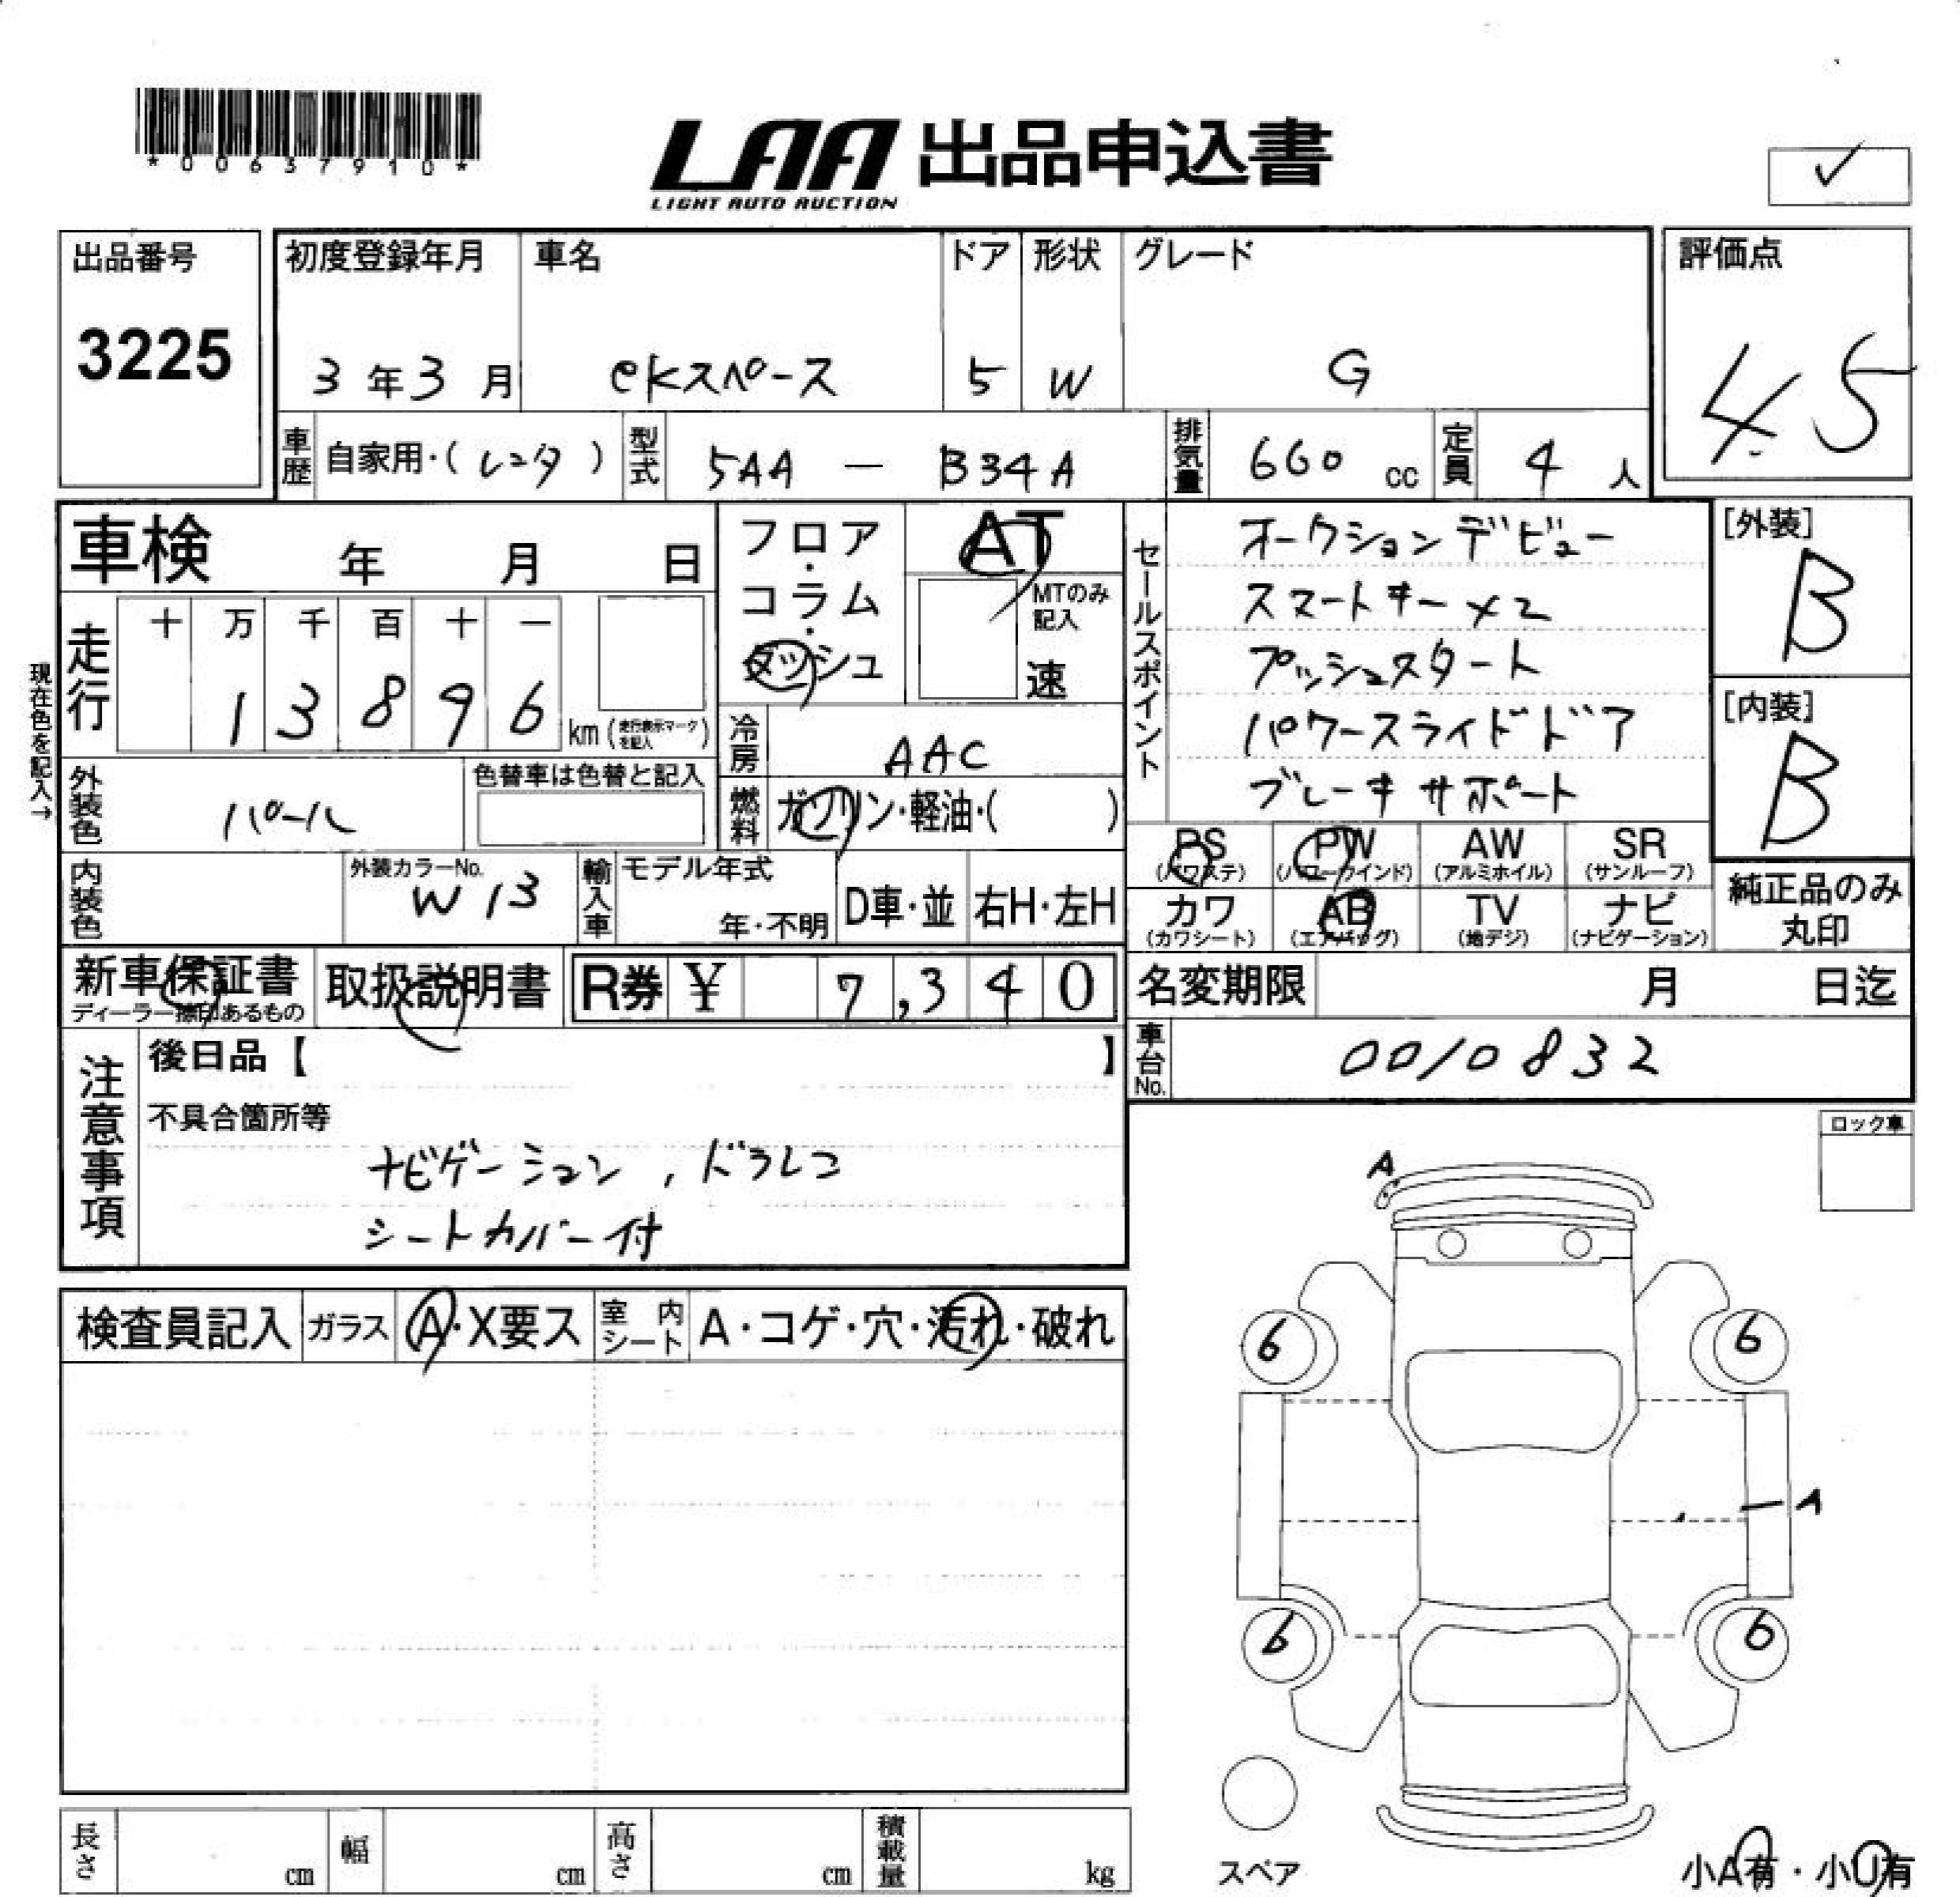 *00637910*
LAA 出品申込書
LIGHT AUTO AUCTION
✓
出品番号
3225
初度登録年月
3年3月
車名
ekスペース
ドア
5
形状
W
グレード
G
評価点
4.5
車歴 自家用・(レンタ)
型式 5AA — B34A
排気量 660 cc
定員 4 人
車検 年 月 日
フロア・コラム・ダッシュ
AT
MTのみ記入
速
セールスポイント
オークションデビュー
スマートキー×2
プッシュスタート
パワースライドドア
ブレーキサポート
[外装]
B
[内装]
B
現在色を記入→
走行
十 万 千 百 十 一
1 3 8 9 6 km (走行表示マークを記入)
冷房 AAC
外装色 パール
色替車は色替と記入
燃料 ガソリン・軽油・( )
内装色
外装カラーNo.
W13
輸入車 モデル年式
年・不明
D車・並
右H・左H
PS (パワステ)
PW (パワーウインド)
AW (アルミホイル)
SR (サンルーフ)
カワ (カワシート)
AB (エアバッグ)
TV (地デジ)
ナビ (ナビゲーション)
純正品のみ丸印
新車保証書
ディーラー捺印あるもの
取扱説明書
R券 ¥ 7,340
名変期限 月 日迄
車台No. 0010832
注意事項
後日品【 】
不具合箇所等
ナビゲーション, ドラレコ
シートカバー付
ロック車
検査員記入
ガラス A・X要ス
室内シート A・コゲ・穴・汚れ・破れ
A
6
6
A
6
6
スペア
小A有・小U有
長さ cm
幅 cm
高さ cm
積載量 kg